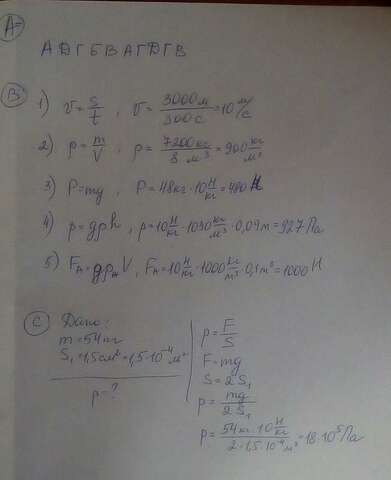 A=
А Д Г Б В А Г Д Г В
B
1) v = s/t , v = 3000 м/300 с = 10 м/с
2) ρ = m/V , ρ = 7200 кг/8 м³ = 900 кг/м³
3) P = mg , P = 48 кг · 10 Н/кг = 480 Н
4) p = gρh , p = 10 Н/кг · 1030 кг/м³ · 0,09 м = 927 Па
5) F_A = gρ_ж V , F_A = 10 Н/кг · 1000 кг/м³ · 0,1 м³ = 1000 Н
C Дано:
m = 54 кг
S₁ = 1,5 см² = 1,5 · 10⁻⁴ м²
p = ?
p = F/S
F = mg
S = 2S₁
p = mg/2S₁
p = 54 кг · 10 Н/кг / 2 · 1,5 · 10⁻⁴ м² = 18 · 10⁵ Па